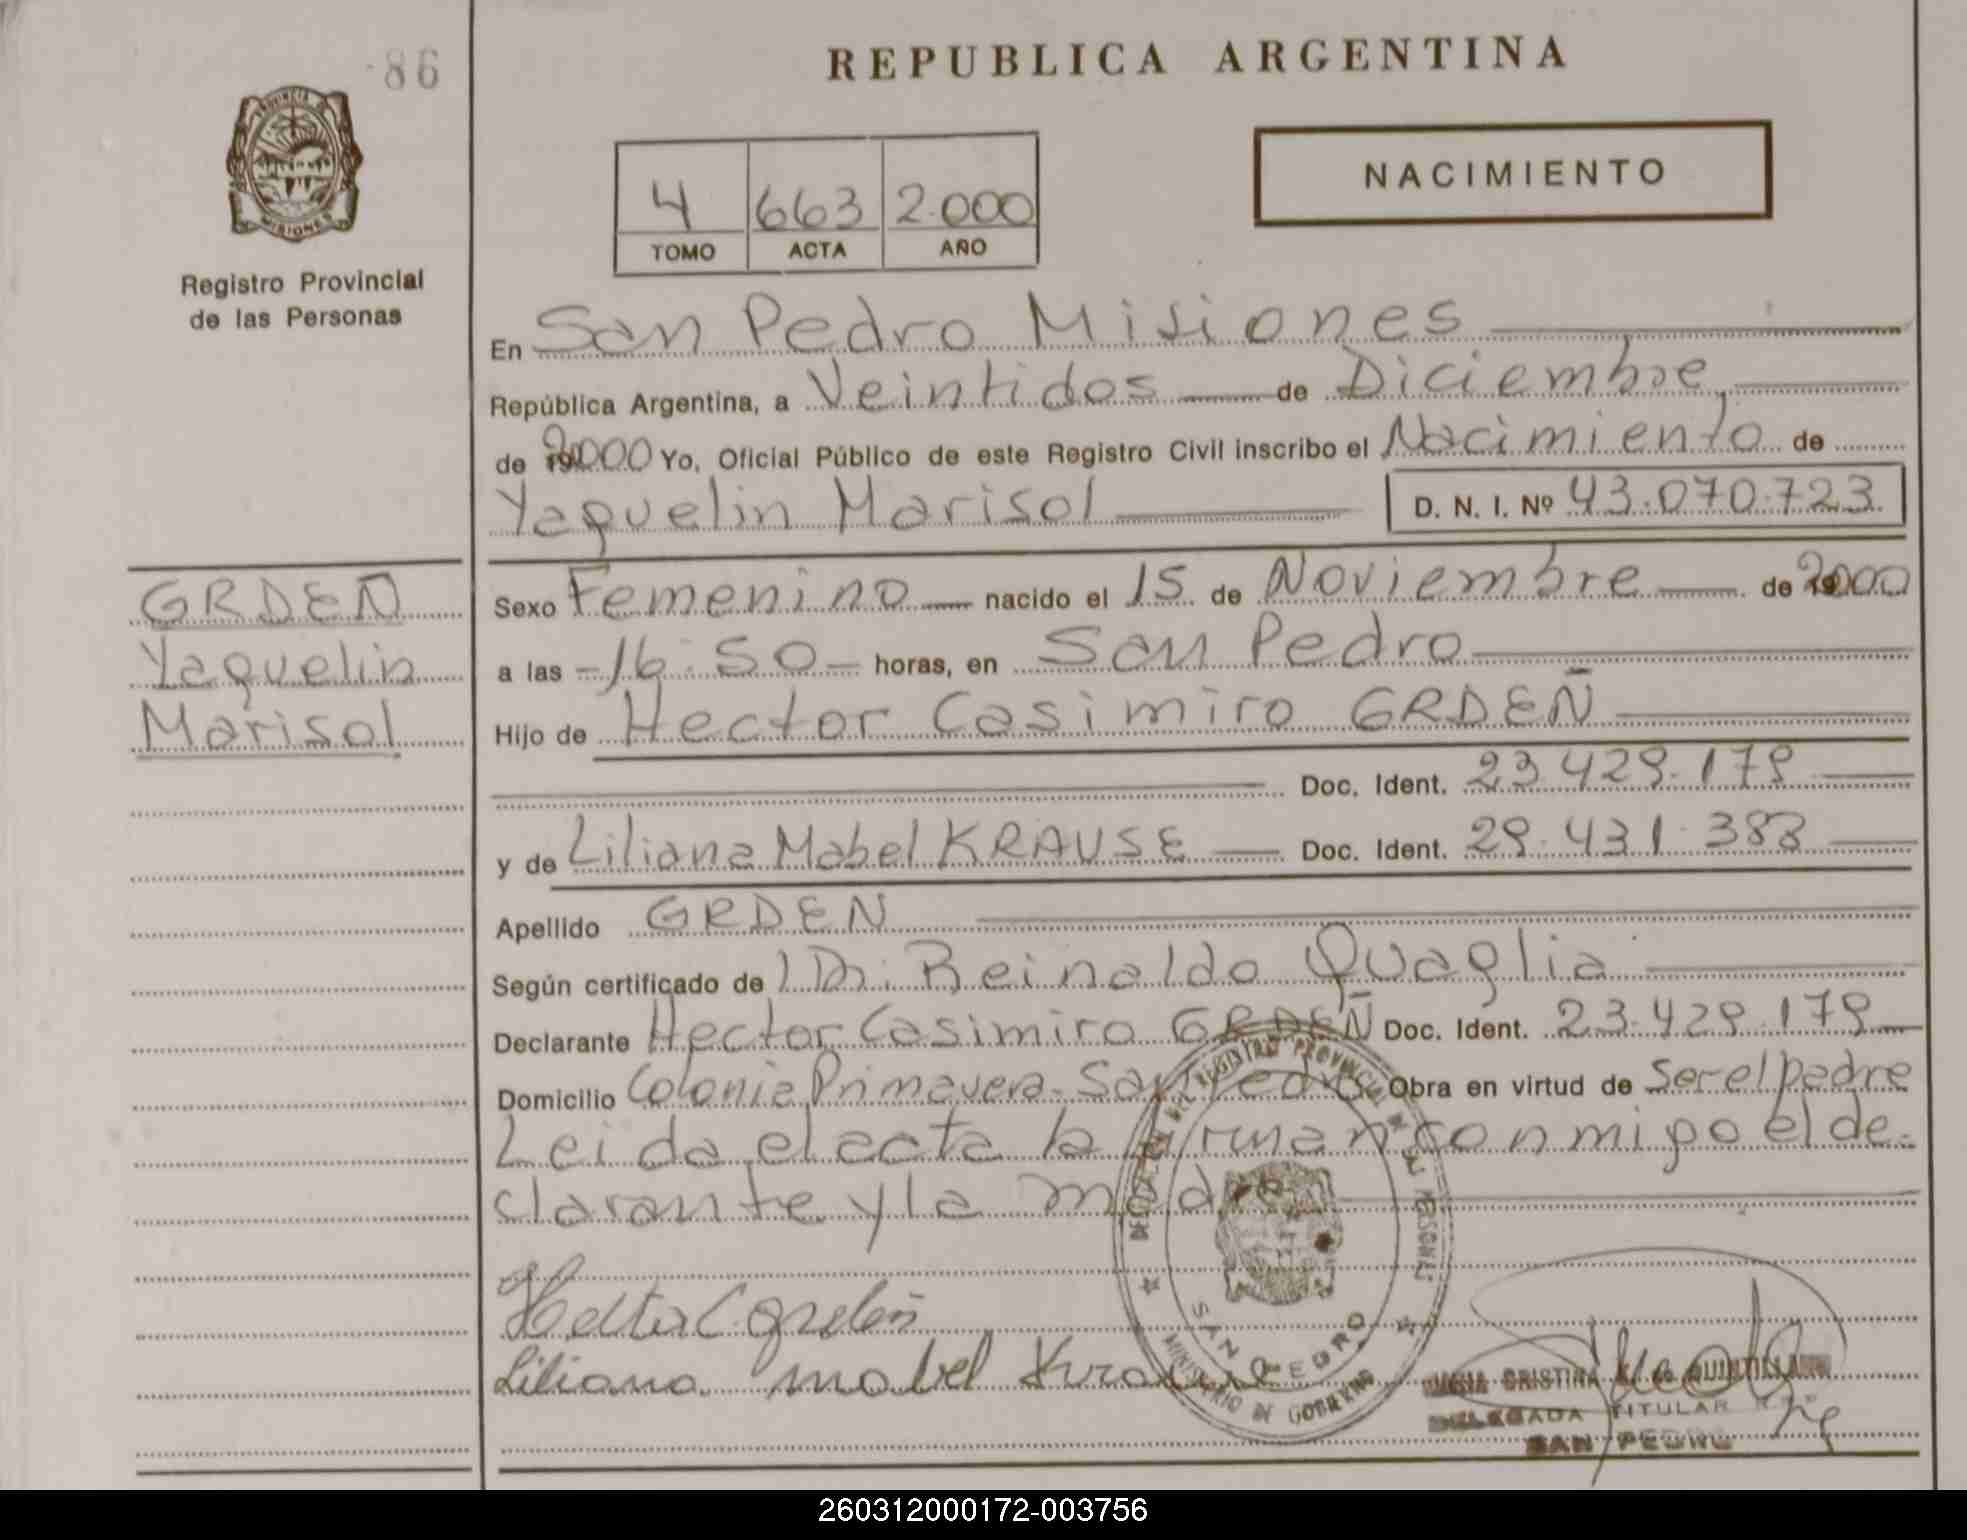 86
REPUBLICA ARGENTINA
PROVINCIA DE
MISIONES
Registro Provincial
de las Personas
4 663 2.000
TOMO ACTA AÑO
NACIMIENTO
En San Pedro Misiones
República Argentina, a Veintidos de Diciembre
de 2000 Yo, Oficial Público de este Registro Civil inscribo el Nacimiento de
Yaquelin Marisol D. N. I. Nº 43.070.723
GRDEÑ
Yaquelin
Marisol
Sexo Femenino nacido el 15 de Noviembre de 2000
a las 16:50 horas, en San Pedro
Hijo de Hector Casimiro GRDEÑ
Doc. Ident. 23.429.179
y de Liliana Mabel KRAUSE Doc. Ident. 29.431.383
Apellido GRDEN
Según certificado de Dr. Reinaldo Quaglia
Declarante Hector Casimiro GRDEÑ Doc. Ident. 23.429.179
Domicilio Colonia Primavera-San Pedro Obra en virtud de Ser el padre
Leida el acta la firman conmigo el de-
clarante y la madre
DEL REGISTRO PROVINCIAL DE LAS PERSONAS
SAN PEDRO
MINISTERIO DE GOBIERNO
Hector C. Grdeñ
Liliana mabel Krause
CRISTINA QUINTILLAN
DELEGADA TITULAR
SAN PEDRO
260312000172-003756